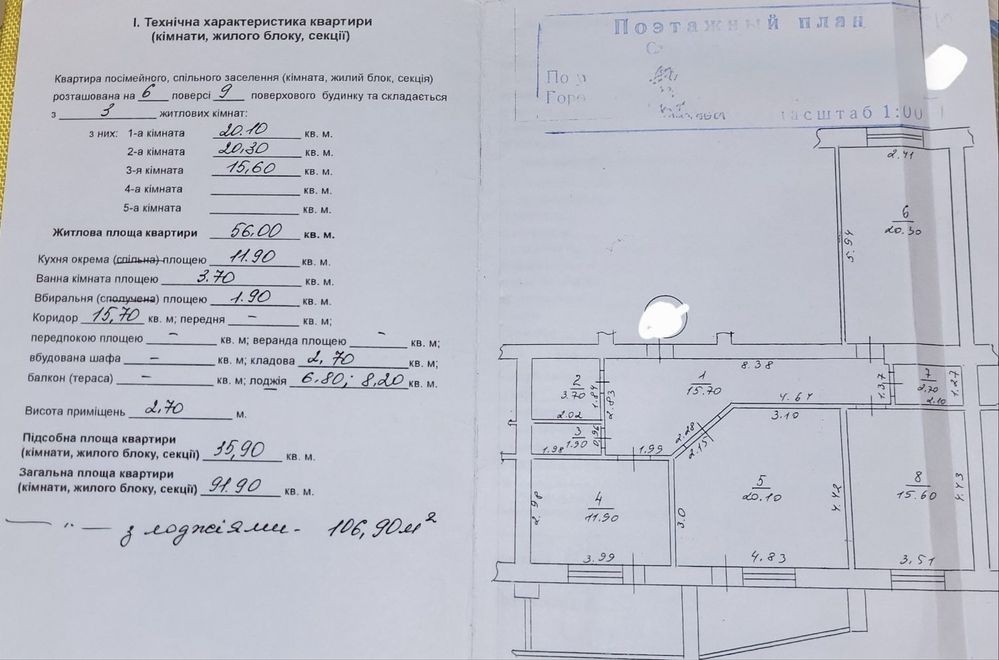 І. Технічна характеристика квартири
(кімнати, жилого блоку, секції)
Квартира посімейного, спільного заселення (кімната, жилий блок, секція)
розташована на 6 поверсі 9 поверхового будинку та складається
з 3 житлових кімнат:
з них: 1-а кімната 20.10 кв. м.
2-а кімната 20,30 кв. м.
3-я кімната 15,60 кв. м.
4-а кімната кв. м.
5-а кімната кв. м.
Житлова площа квартири 56,00 кв. м.
Кухня окрема (спільна) площею 11.90 кв. м.
Ванна кімната площею 3.70 кв. м.
Вбиральня (сполучена) площею 1.90 кв. м.
Коридор 15,70 кв. м; передня – кв. м;
передпокою площею – кв. м; веранда площею – кв. м;
вбудована шафа – кв. м; кладова 2,70 кв. м;
балкон (тераса) – кв. м; лоджія 6.80; 8,20 кв. м.
Висота приміщень 2,70 м.
Підсобна площа квартири
(кімнати, жилого блоку, секції) 35,90 кв. м.
Загальна площа квартири
(кімнати, жилого блоку, секції) 91.90 кв. м.
— " — з лоджіями - 106,90 м²
Поэтажный план
По
Горо
масштаб 1:00
2.41
6
20.30
5.94
8.38
1
15.70
4.64
1.37
7
2.70
2.10
1.27
2
3.70
2.02
1.84
2.83
3
1.90
1.98
0.96
1.99
2.28
2.15
3.10
4
11.90
2.98
3.99
5
20.10
3.0
4.42
4.83
8
15.60
4.43
3.51